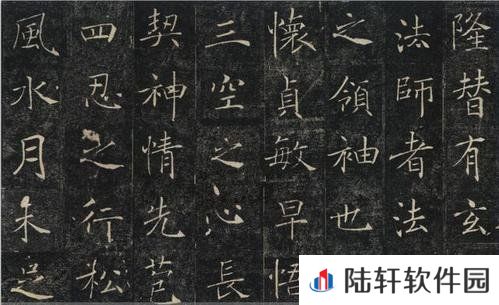 隆替有玄
法師者法
之領袖也
懷貞敏早悟
三空之心長
契神情先苞
四忍之行松
風水月未足
陆轩软件园